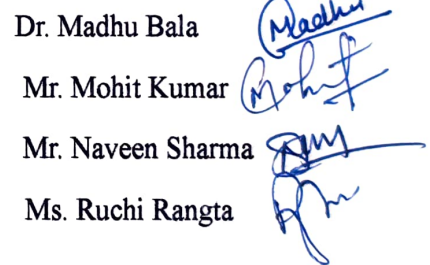 Dr. Madhu Bala Madhu
Mr. Mohit Kumar Mohit
Mr. Naveen Sharma
Ms. Ruchi Rangta